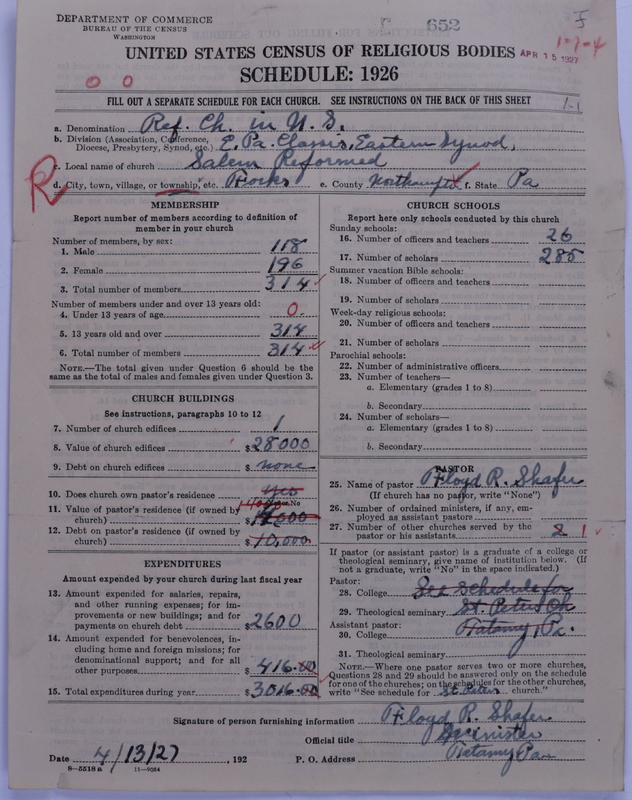 DEPARTMENT OF COMMERCE
BUREAU OF THE CENSUS
WASHINGTON
652
F
1-7-4
APR 15 1927
UNITED STATES CENSUS OF RELIGIOUS BODIES
SCHEDULE: 1926
0 0
FILL OUT A SEPARATE SCHEDULE FOR EACH CHURCH. SEE INSTRUCTIONS ON THE BACK OF THIS SHEET
1-1
a. Denomination Ref. Ch. in U. S.
b. Division (Association, Conference, Diocese, Presbytery, Synod, etc.) E. Pa. Classis, Eastern Synod,
c. Local name of church Salem Reformed
R
d. City, town, village, or township, etc. e. County Northampton f. State Pa
MEMBERSHIP
Report number of members according to definition of
member in your church
Number of members, by sex:
1. Male 118
2. Female 196
3. Total number of members 314
Number of members under and over 13 years old:
4. Under 13 years of age 0.
5. 13 years old and over 314
6. Total number of members 314
NOTE.—The total given under Question 6 should be
same as the total of males and females given under Question 3.
CHURCH BUILDINGS
See instructions, paragraphs 10 to 12
7. Number of church edifices 1
8. Value of church edifices $28000
9. Debt on church edifices $ none
10. Does church own pastor's residence yes
Yes or No
11. Value of pastor's residence (if owned by
church) $
12. Debt on pastor's residence (if owned by
church) $10,000
EXPENDITURES
Amount expended by your church during last fiscal year
13. Amount expended for salaries, repairs,
and other running expenses; for im-
provements or new buildings; and for
payments on church debt $2600
14. Amount expended for benevolences, in-
cluding home and foreign missions; for
denominational support; and for all
other purposes $416.00
15. Total expenditures during year $3016.00
CHURCH SCHOOLS
Report here only schools conducted by this church
Sunday schools:
16. Number of officers and teachers 26
17. Number of scholars 285
Summer vacation Bible schools:
18. Number of officers and teachers
19. Number of scholars
Week-day religious schools:
20. Number of officers and teachers
21. Number of scholars
Parochial schools:
22. Number of administrative officers
23. Number of teachers—
a. Elementary (grades 1 to 8)
b. Secondary
24. Number of scholars—
a. Elementary (grades 1 to 8)
b. Secondary
PASTOR
25. Name of pastor Floyd R. Shafer
(If church has no pastor, write "None")
26. Number of ordained ministers, if any, em-
ployed as assistant pastors
27. Number of other churches served by the
pastor or his assistants 2 1
If pastor (or assistant pastor) is a graduate of a college or
theological seminary, give name of institution below. (If
not a graduate, write "No" in the space indicated.)
Pastor:
28. College See schedule for
29. Theological seminary St. Peters Ch
Assistant pastor:
30. College Tatamy, Pa.
31. Theological seminary
NOTE.—Where one pastor serves two or more churches,
Questions 28 and 29 should be answered only on the schedule
for one of the churches; on the schedules for the other churches,
write "See schedule for St. Peters church."
Signature of person furnishing information Floyd R. Shafer
Official title Minister
Date 4/13/27, 192 P. O. Address Tatamy Pa
8—5518 a 11—9084